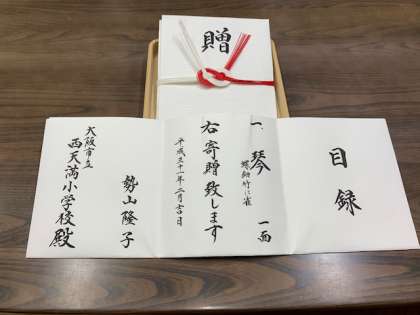 贈
目録
一、琴 一面
螺鈿竹に雀
右寄贈致します
平成三十一年二月吉日
勢山隆子
大阪市立
西天満小学校殿